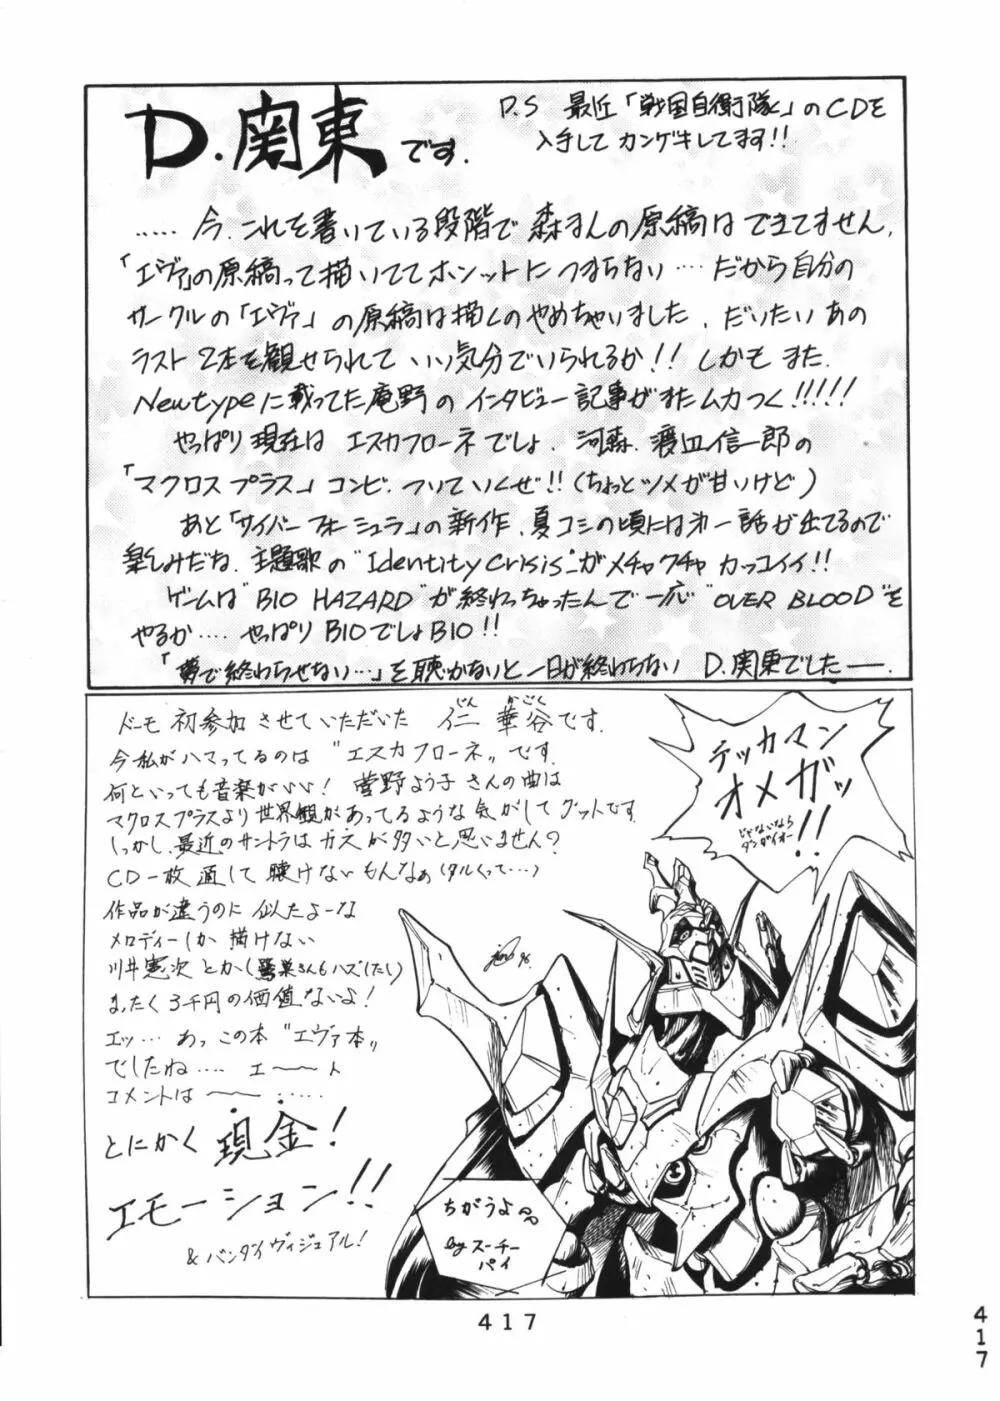 D.関東です.
P.S 最近「戦国自衛隊」のCDを
入手してカンゲキしてます!!
..... 今.これを書いている段階で森さんの原稿はできてません.
「エヴァ」の原稿って描いててホンットにつまらない…だから自分の
サークルの「エヴァ」の原稿は描くのやめちゃいました.だいたいあの
ラスト2本を観せられていい気分でいられるか!!しかもまた.
Newtypeに載ってた庵野のインタビュー記事がまたムカつく!!!!!
やっぱり現在はエスカフローネでしょ.河森.渡辺信一郎の
「マクロスプラス」コンビ.ついていくぜ!!(ちょっとツメが甘いけど)
あと「サイバーフォーミュラ」の新作.夏コミの頃には才一話が出てるので
楽しみだね.主題歌の"Identity crisis"がメチャクチャカッコイイ!!
ゲームは"BIO HAZARD"が終わっちゃったんで一応"OVER BLOOD"を
やるか....やっぱりBIOでしょBIO!!
「夢で終わらせない…」を聴かないと一日が終わらない D.関東でしたー.
ドーモ初参加させていただいた 仁 華谷です.
じん かごく
今私がハマってるのは"エスカフローネ"です.
何といっても音楽がいい!菅野よう子さんの曲は
マクロスプラスより世界観があってるような気がしてグットです.
しかし、最近のサントラはカスが多いと思いません?
CD一枚通して聴けないもんなぁ(タルくって…)
作品が違うのに似たよーな
メロディーしか描けない
川井憲次とかく鷺巣さんもハズ(したし)
まったく3千円の価値ないよ!
エッ…あっこの本"エヴァ本"
でしたね.... エ〜〜ト
コメントは〜〜.....
とにかく現金!
エモーション!!
&バンダイヴィジュアル!
テッカマン
オメガッ!!
じゃないなら
ダンガイオー
jin 96.
ちがうよ
by スーチー
パイ
417
417